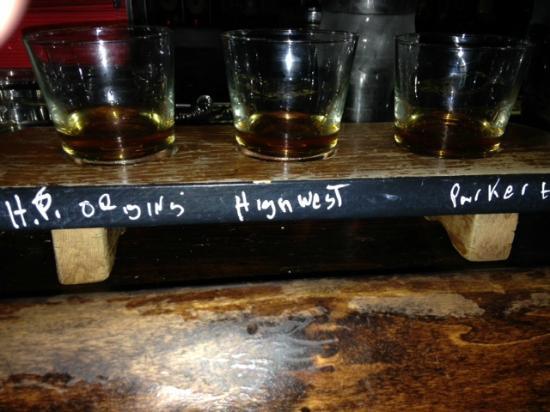 H.P. ORigiNs HigHWEST ParkEr